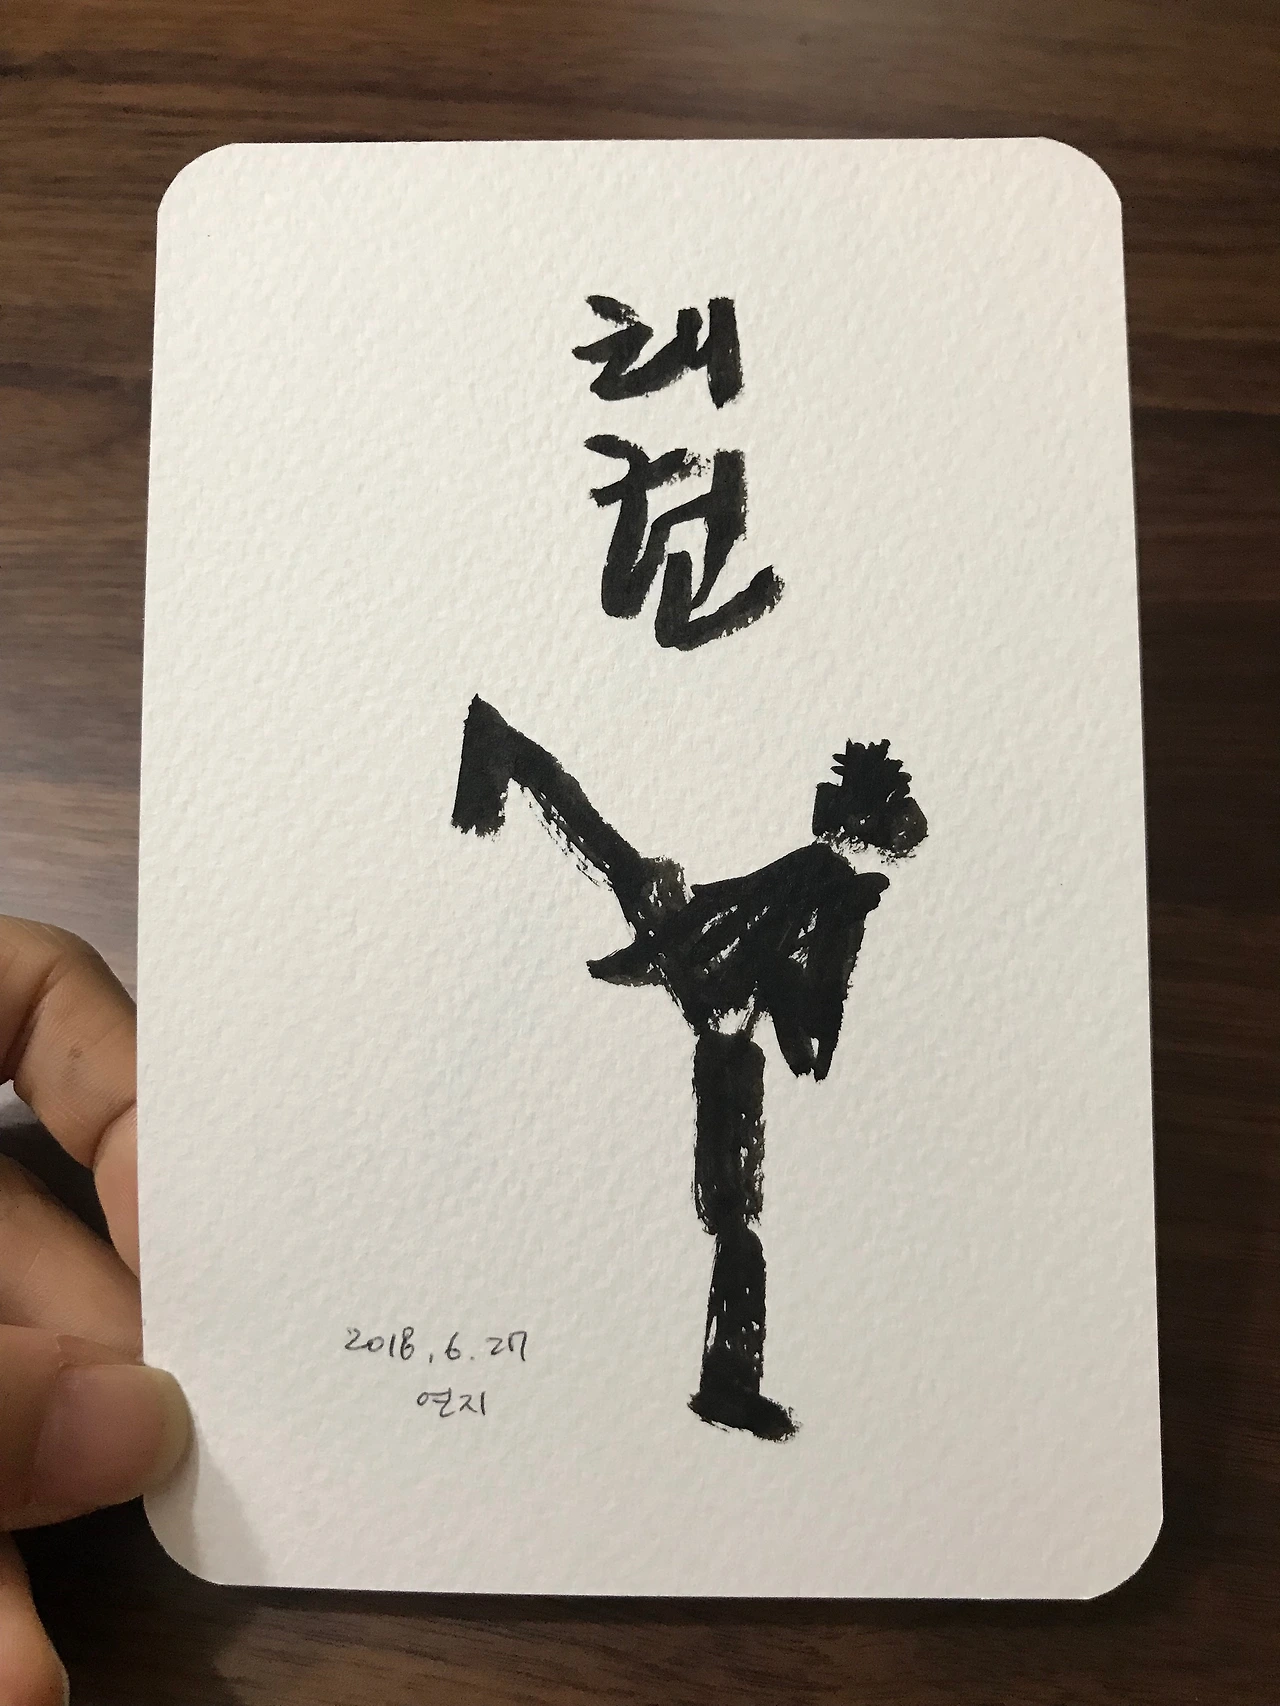 태
권
2018. 6. 27
연지